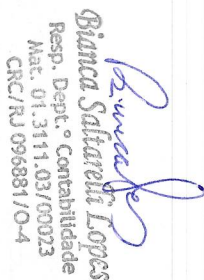 Bianca Saltarelli Lopes
Resp. Dept.º Contabilidade
Mat. 01.3111.03/00023
CRC/RJ 096881/O-4